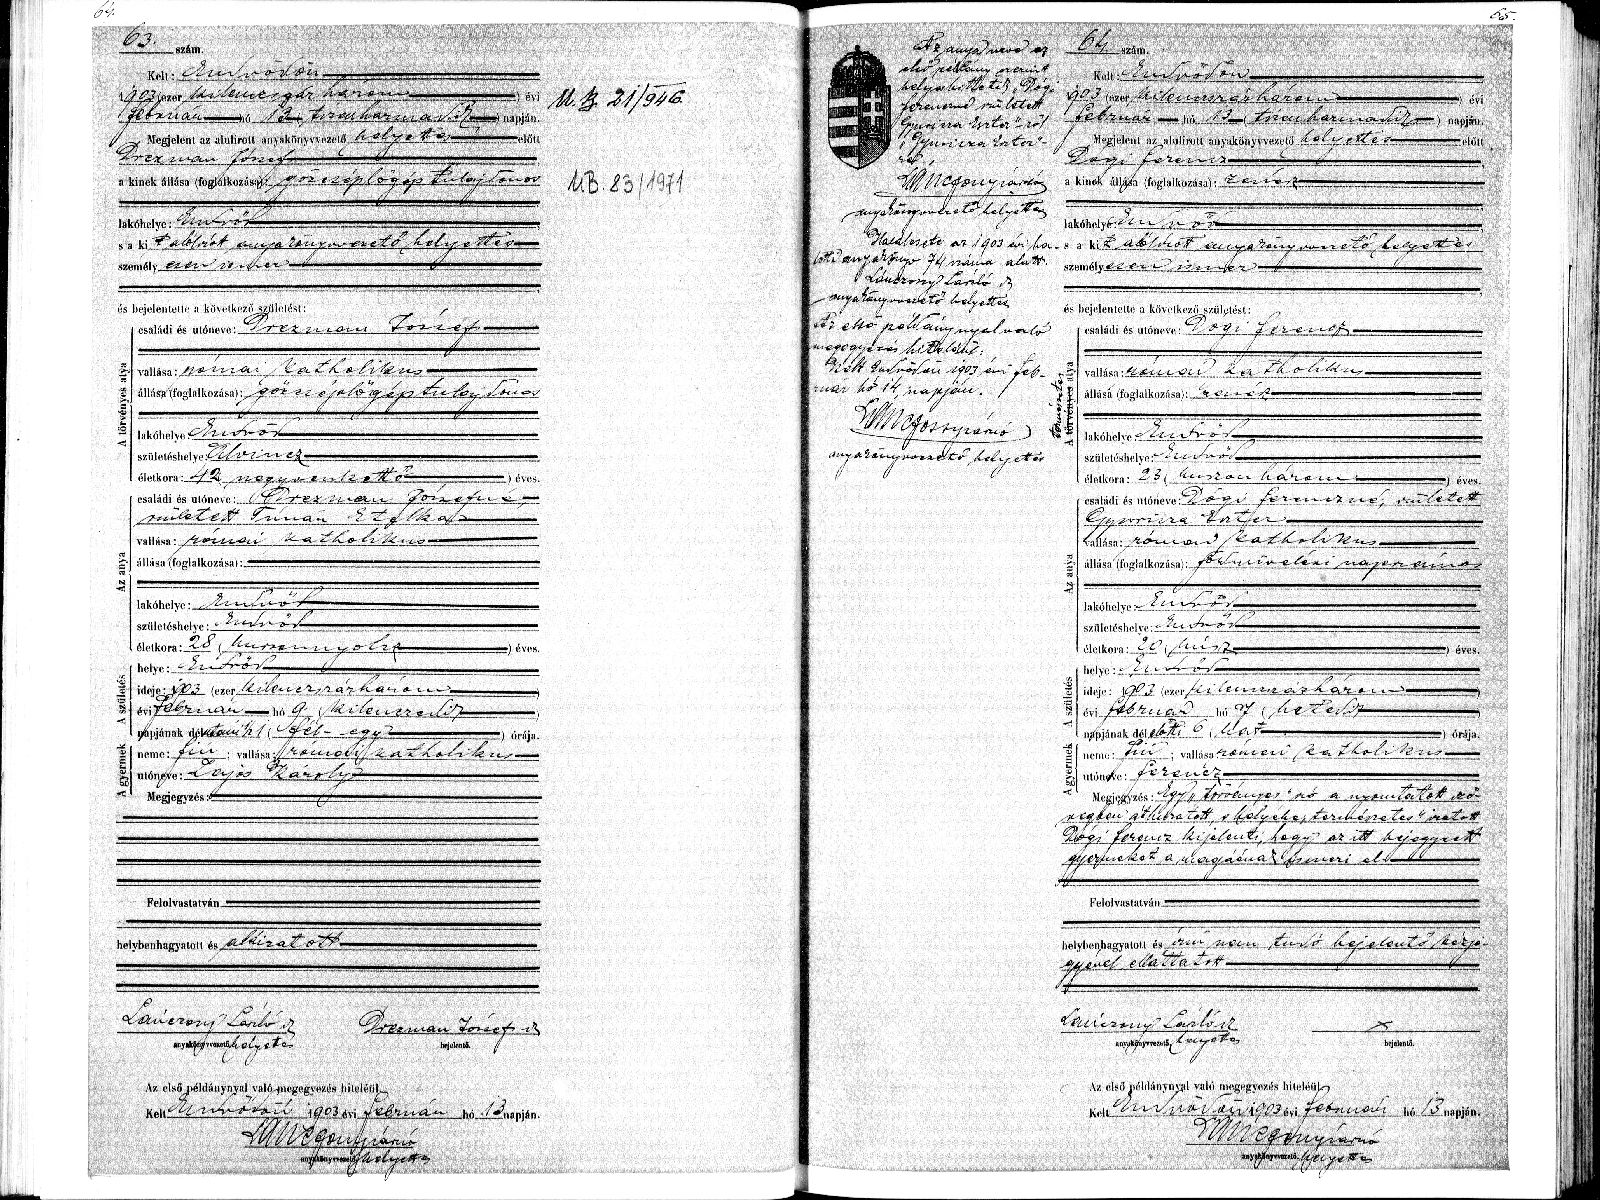 64.
63. szám.
Kelt: Endrődön
1903 (ezer kilenczszázhárom) évi
február hó 13 (tizenharmadik) napján.
Megjelent az alulirott anyakönyvvezető helyettes előtt
Drezman József
a kinek állása (foglalkozása): gőzcséplőgép tulajdonos
lakóhelye: Endrőd
s a kit alólirott anyakönyvvezető helyettes
személyesen ismer
és bejelentette a következő születést:
A törvényes atya
családi és utóneve: Drezman József
vallása: római katholikus
állása (foglalkozása): gőzcséplőgép tulajdonos
lakóhelye Endrőd
születéshelye: Alvincz
életkora: 42 (negyvenkettő) éves.
Az anya
családi és utóneve: Drezman Józsefné,
született Tímár Etelka
vallása: római katholikus
állása (foglalkozása):
lakóhelye: Endrőd
születéshelye: Endrőd
életkora: 28 (huszonnyolcz) éves.
A születés
helye: Endrőd
ideje: 1903 (ezer kilenczszázhárom)
évi február hó 9 (kilenczedik)
napjának délután ½1 (fél-egy) órája.
A gyermek
neme: fiú; vallása: római katholikus
utóneve: Lajos Károly
Megjegyzés:
Felolvastatván
helybenhagyatott és aláiratott
Lánczony László sk
anyakönyvvezető helyettes
Drezman József sk
bejelentő.
Az első példánynyal való megegyezés hiteléül
Kelt Endrődön 1903 évi február hó 13 napján.
anyakönyvvezető helyettes
M.B. 21/946
MB. 83/1971
65.
Az anya neve az
első példány szerint
helyesbíttetett „Dógi
Ferenczné született
Gyuricza Eszter"-ről
„Gyuricza Eszter"-
re.
anyakönyvvezető helyettes
Halálesete az 1903 évi ha-
lotti anyakönyv 74 száma alatt.
Lánczony László sk
anyakönyvvezető helyettes
Az első példánynyal való
megegyezés hiteléül:
Kelt Endrődön 1903 évi feb-
ruár hó 14, napján.
anyakönyvvezető helyettes
64. szám.
Kelt: Endrődön
1903 (ezer kilenczszázhárom) évi
február hó 13 (tizenharmadik) napján.
Megjelent az alulirott anyakönyvvezető helyettes előtt
Dógi Ferencz
a kinek állása (foglalkozása): zenész
lakóhelye: Endrőd
s a kit alólirott anyakönyvvezető helyettes
személyesen ismer
és bejelentette a következő születést:
A törvényes atya
természetes
családi és utóneve: Dógi Ferencz
vallása: római katholikus
állása (foglalkozása): zenész
lakóhelye Endrőd
születéshelye: Endrőd
életkora: 23 (huszonhárom) éves.
Az anya
családi és utóneve: Dógi Ferenczné, született
Gyuricza Eszter
vallása: római katholikus
állása (foglalkozása): földmívelési napszámos
lakóhelye: Endrőd
születéshelye: Endrőd
életkora: 20 (húsz) éves.
A születés
helye: Endrőd
ideje: 1903 (ezer kilenczszázhárom)
évi február hó 7 (hetedik)
napjának délelőtti 6 (hat) órája.
A gyermek
neme: fiú; vallása: római katholikus
utóneve: Ferencz
Megjegyzés: Egy „törvényes" szó a nyomtatott szö-
vegben áthúzatott, s helyébe „természetes" íratott
Dógi Ferencz kijelenti, hogy az itt bejegyzett
gyermeket a magáénak ismeri el
Felolvastatván
helybenhagyatott és írni nem tudó bejelentő kézje-
gyével elláttatott
Lánczony László sk
anyakönyvvezető helyettes
x
bejelentő.
Az első példánynyal való megegyezés hiteléül
Kelt Endrődön 1903 évi február hó 13 napján.
anyakönyvvezető helyettes